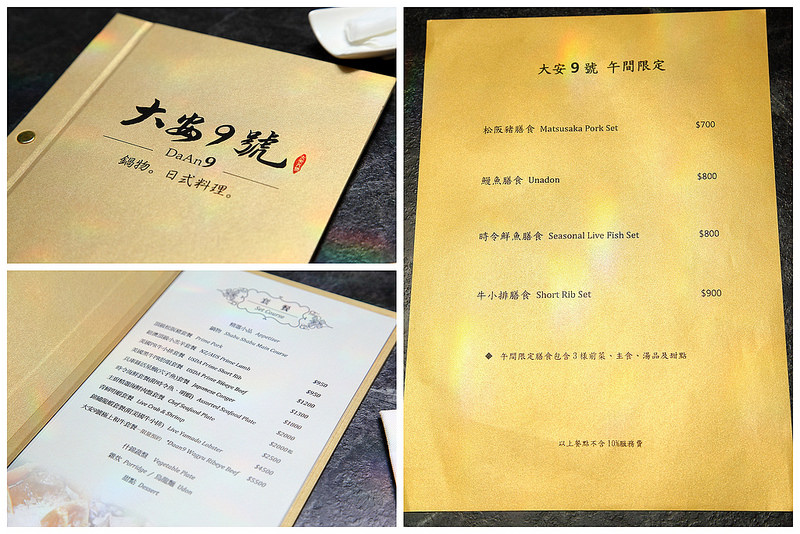 大安9號
DaAn9
鍋物。日式料理。
套餐
Set Course
精選小品 Appetizer
鍋物 Shabu Shabu Main Course
頂級松阪豬套餐 Prime Pork $950
紐澳頂級小羔羊套餐 NZ/AUS Prime Lamb $950
美國牛小排套餐 USDA Prime Short Rib $1200
USDA Prime Ribeye Beef $1500
Japanese Conger $1800
Assorted Seafood Plate $2000
Chef Seafood Plate $2000
Live Crab & Shrimp $2500
Live Yamado Lobster $4500
大安9號極上和牛套餐 *Daan9 Wagyu Ribeye Beef $5500
什錦蔬盤 Vegetable Plate
雜炊 Porridge / 烏龍麵 Udon
甜點 Dessert
大安 9 號 午間限定
松阪豬膳食 Matsusaka Pork Set $700
鰻魚膳食 Unadon $800
時令鮮魚膳食 Seasonal Live Fish Set $800
牛小排膳食 Short Rib Set $900
◆ 午間限定膳食包含3樣前菜、主食、湯品及甜點
以上餐點不含10%服務費